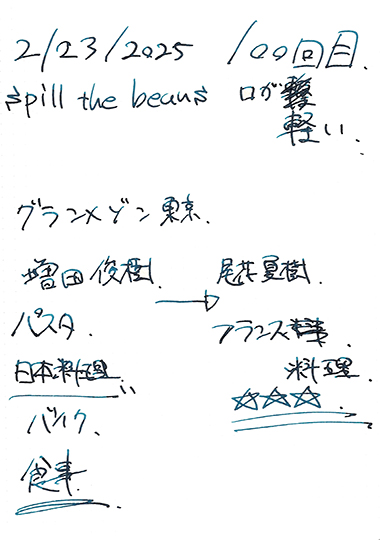 2/23/2025 100回目.
spill the beans 口が
軽い.
グランメゾン東京.
増田俊樹. → 尾花夏樹.
パスタ. フランス
日本料理 料理.
バイク. ☆☆☆.
食事.